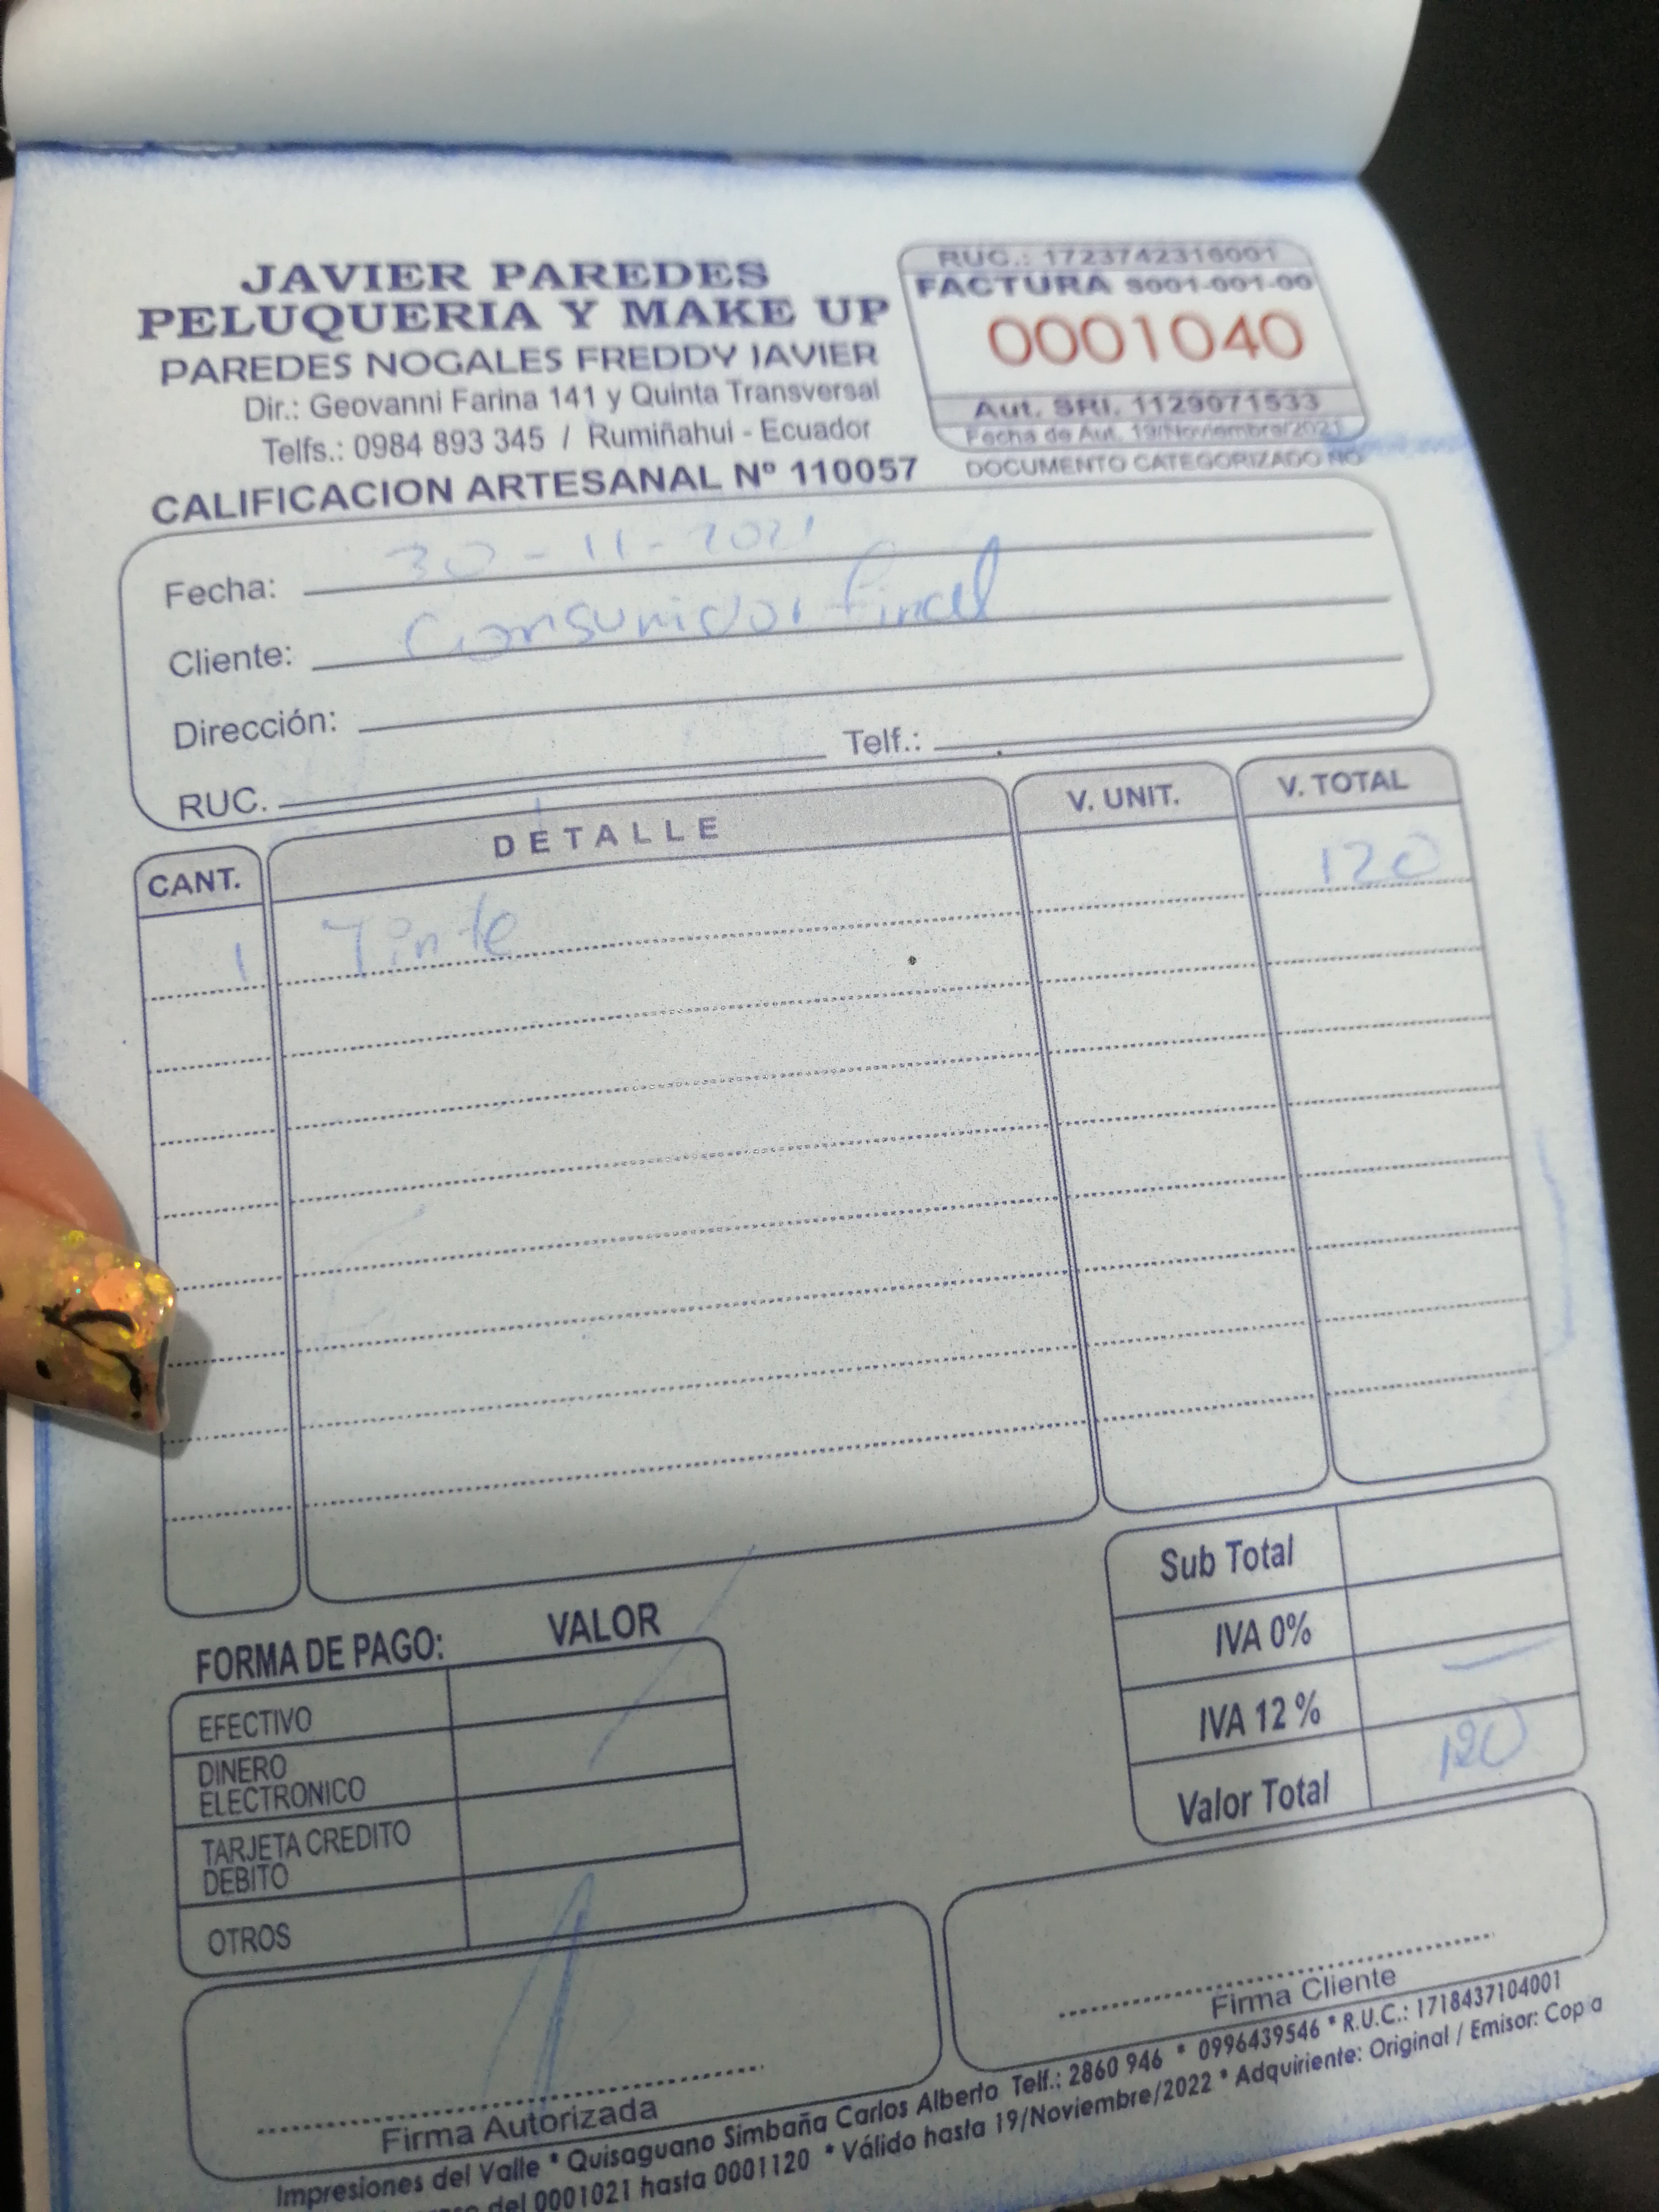 JAVIER PAREDES
PELUQUERIA Y MAKE UP
PAREDES NOGALES FREDDY JAVIER
Dir.: Geovanni Farina 141 y Quinta Transversal
Telfs.: 0984 893 345 / Rumiñahui - Ecuador
CALIFICACION ARTESANAL Nº 110057
RUC.: 1723742316001
FACTURA S001-001-00
0001040
Aut. SRI. 1129071533
Fecha de Aut. 19/Noviembre/2021
DOCUMENTO CATEGORIZADO NO
Fecha: 30-11-2021
Cliente: Consumidor final
Dirección:
RUC. Telf.:
CANT. DETALLE V. UNIT. V. TOTAL
1 Tinte 120
FORMA DE PAGO: VALOR
EFECTIVO
DINERO
ELECTRONICO
TARJETA CREDITO
DEBITO
OTROS
Sub Total
IVA 0%
IVA 12 % —
Valor Total 120
Firma Autorizada
Firma Cliente
Impresiones del Valle * Quisaguano Simbaña Carlos Alberto Telf.: 2860 946 * 0996439546 * R.U.C.: 1718437104001
del 0001021 hasta 0001120 * Válido hasta 19/Noviembre/2022 * Adquiriente: Original / Emisor: Copia